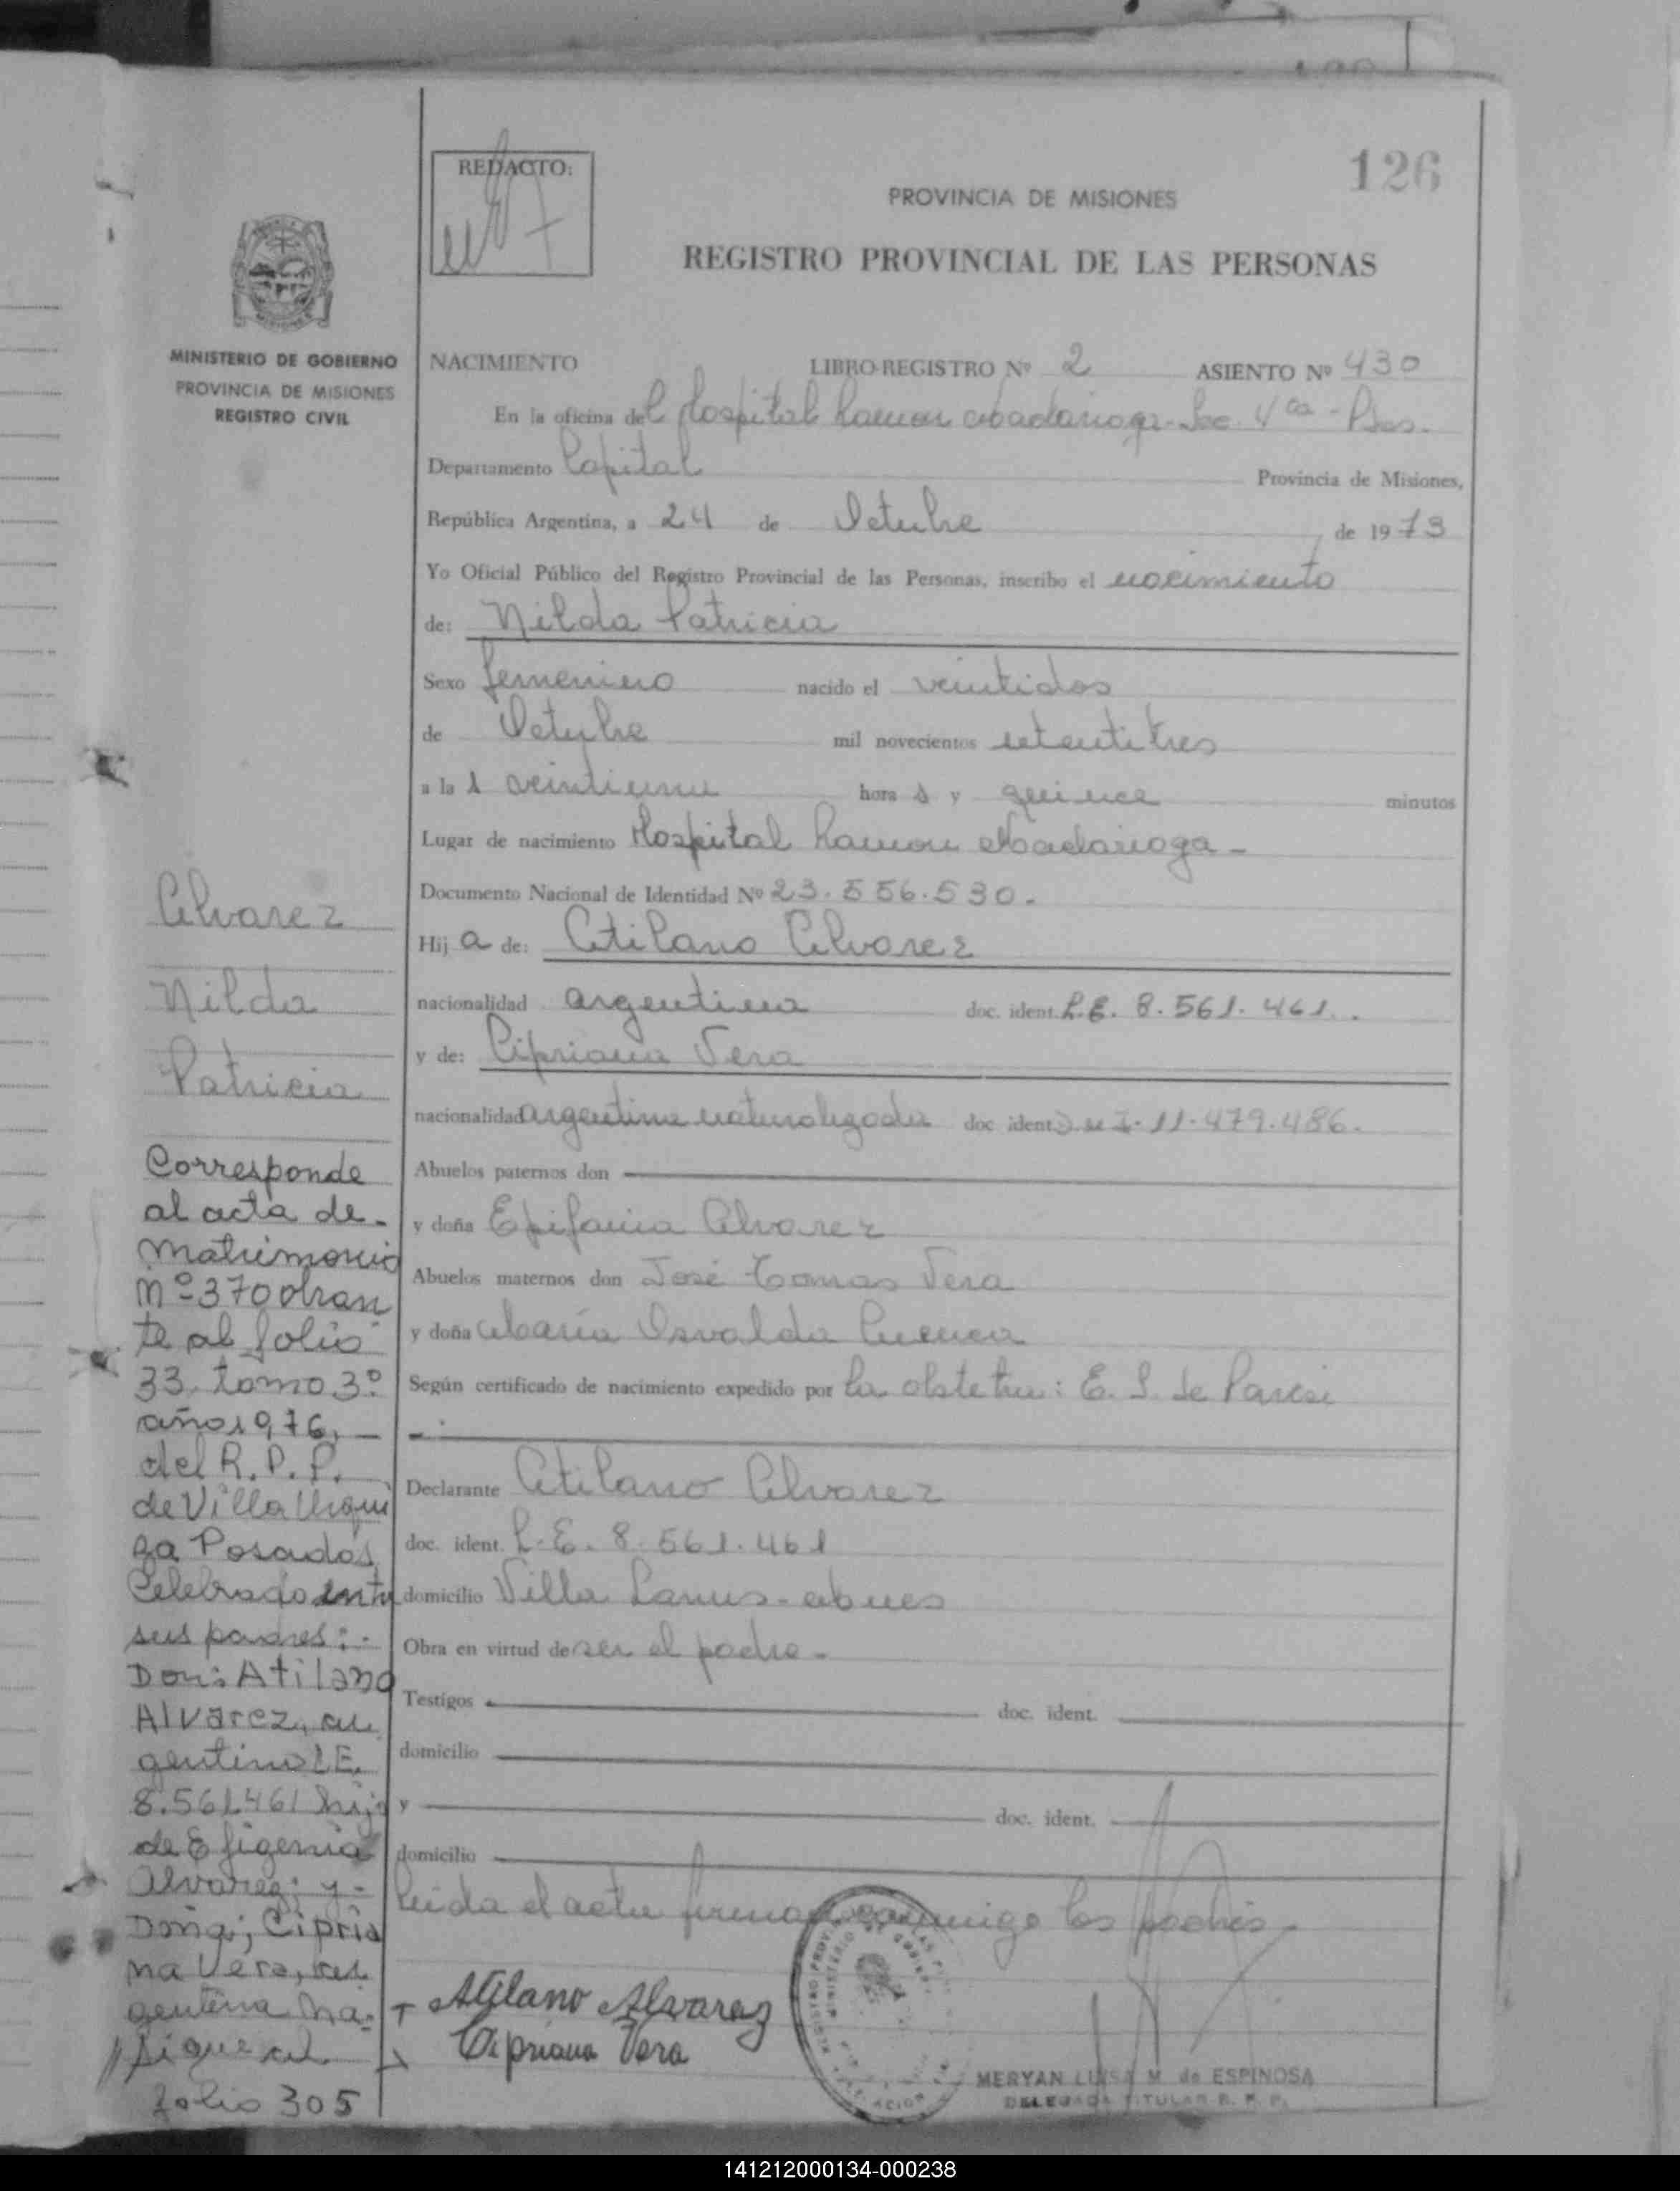 126
REDACTO:
PROVINCIA DE MISIONES
REGISTRO PROVINCIAL DE LAS PERSONAS
MINISTERIO DE GOBIERNO
PROVINCIA DE MISIONES
REGISTRO CIVIL
NACIMIENTO LIBRO-REGISTRO Nº 2 ASIENTO Nº 430
En la oficina del Hospital Ramon Madariaga - Sec. 4ta - Pdas.
Departamento Capital Provincia de Misiones,
República Argentina, a 24 de Octubre de 1973
Yo Oficial Público del Registro Provincial de las Personas, inscribo el nacimiento
de: Nilda Patricia
Sexo femenino nacido el veintidos
de Octubre mil novecientos setentitres
a las veintiuna horas y quince minutos
Lugar de nacimiento Hospital Ramon Madariaga -
Documento Nacional de Identidad Nº 23.556.530.
Hija de: Atilano Alvarez
nacionalidad argentina doc. ident. L.E. 8.561.461..
y de: Cipriana Vera
nacionalidad argentina naturalizada doc ident. D.N.I. 11.479.486.
Abuelos paternos don
y doña Epifania Alvarez
Abuelos maternos don José Tomas Vera
y doña Maria Isvalda Cuenca
Según certificado de nacimiento expedido por la obstetra: E. S. de
Declarante Atilano Alvarez
doc. ident. L.E. 8.561.461
domicilio Villa Lanus - Mnes
Obra en virtud de ser el padre -
Testigos doc. ident.
domicilio
y doc. ident.
domicilio
Leida el acta firman conmigo los padres.
Atilano Alvarez
Cipriana Vera
MERYAN LUISA M. de ESPINOSA
DELEGADA TITULAR R. P. P.
Alvarez
Nilda
Patricia
Corresponde
al acta de-
matrimonio
Nº 370 obran
te al folio
33 tomo 3º
año 1976, -
del R.P.P.
de Villa Urqui
za Posadas
Celebrado entre
sus padres:-
Don: Atilano
Alvarez, ar
gentino L.E.
8.561.461 hijo
de Efigenia
Alvarez; y -
Doña; Cipria
na Vera, ar
gentina na-
// sigue al
folio 305
141212000134-000238